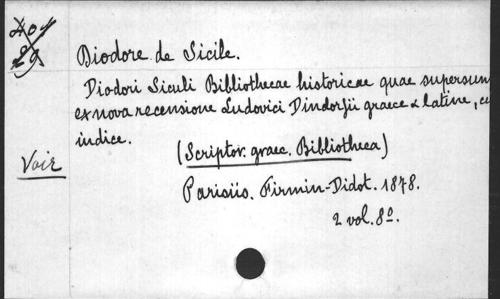 Diodore de Sicile.
Diodori Siculi Bibliothecae historicae quae supersun
ex nova recensione Ludovici Dindorfii graece & latine, cu
indice.
(Scriptor. graec. Bibliotheca)
Voir
Parisiis. Firmin-Didot. 1878.
2 vol. 8º.